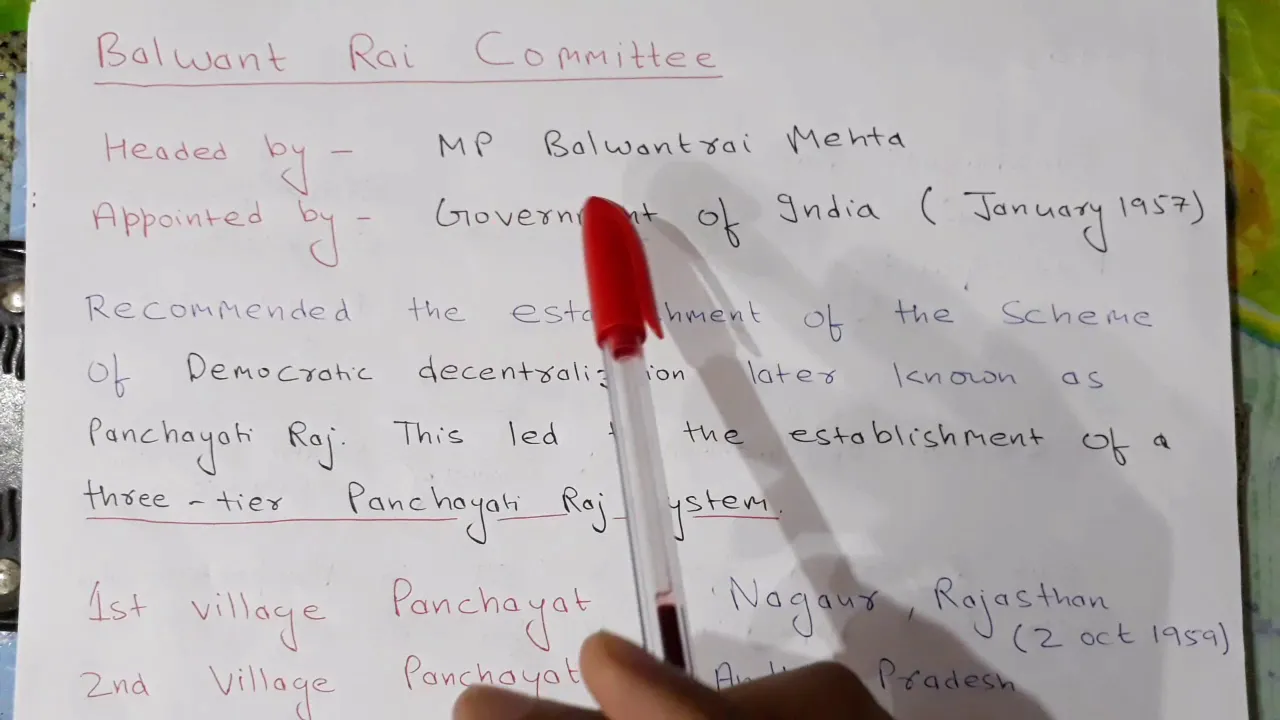 Balwant Rai Committee
Headed by - MP Balwantrai Mehta
Appointed by - Government of India ( January 1957)
Recommended the establishment of the scheme
of Democratic decentralization later known as
Panchayati Raj. This led the establishment of a
three-tier Panchayati Raj system.
1st village Panchayat Nagaur, Rajasthan
(2 oct 1959)
2nd Village Panchayat Andhra Pradesh